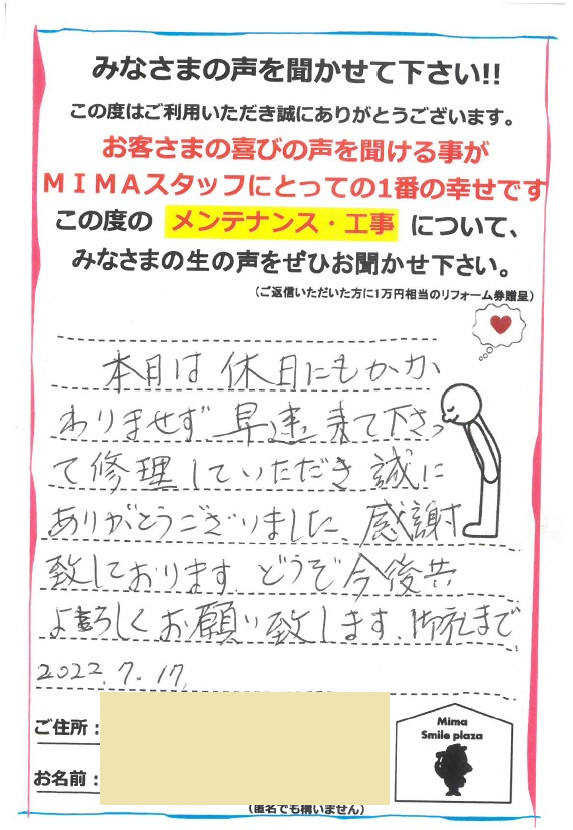 みなさまの声を聞かせて下さい!!
この度はご利用いただき誠にありがとうございます。
お客さまの喜びの声を聞ける事が
MIMAスタッフにとっての1番の幸せです
この度の メンテナンス・工事 について、
みなさまの生の声をぜひお聞かせ下さい。
(ご返信いただいた方に1万円相当のリフォーム券贈呈)
本日は休日にもかか
わりませず早速来て下さっ
て修理していただき誠に
ありがとうございました、感謝
致しております。どうぞ今後共
よろしくお願い致します、御礼まで
2022.7.17
ご住所:
お名前:
(匿名でも構いません)
Mima
Smile plaza